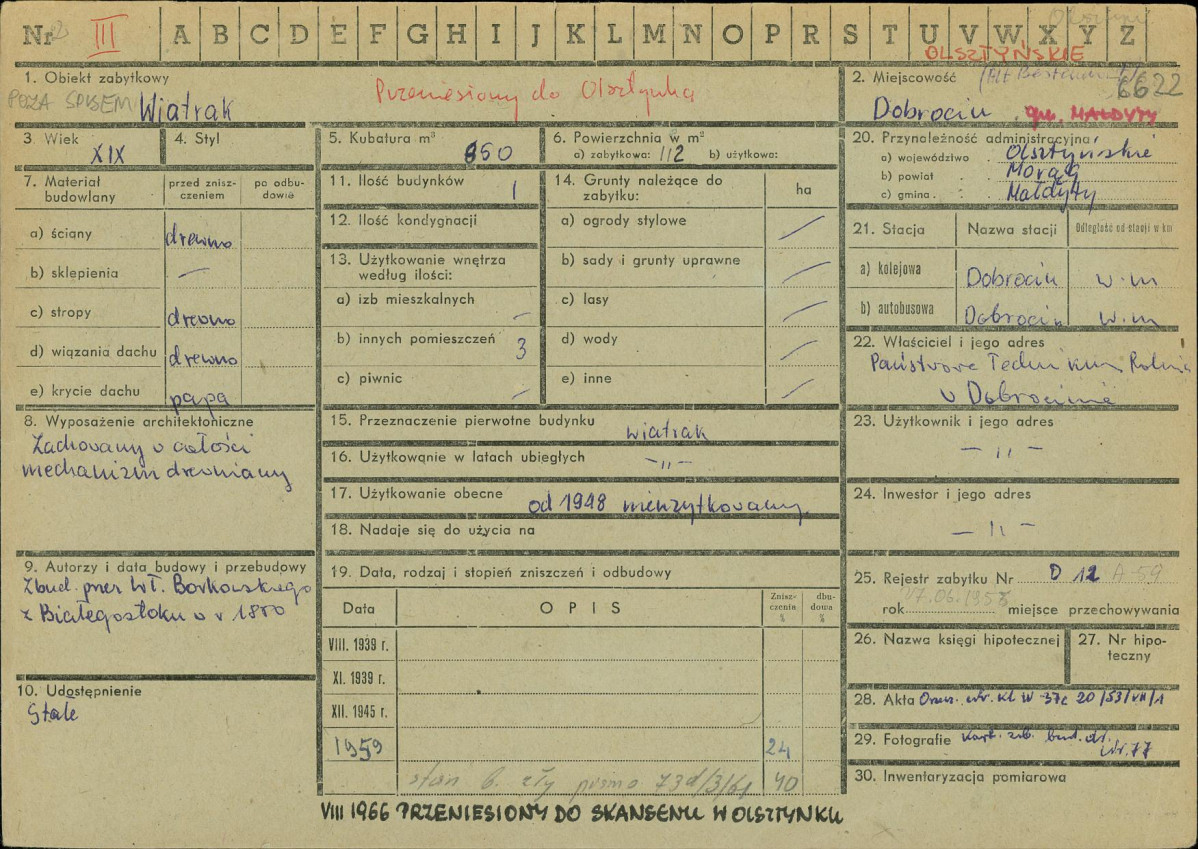 Nr 2 III A B C D E F G H I J K L M N O P R S T U V W X Y Z
OLSZTYŃSKIE
1. Obiekt zabytkowy
POZA SPISEM Wiatrak
Przeniesiony do Olsztynka
2. Miejscowość
6622
Dobrocin gm. MAŁDYTY
3 Wiek XIX
4. Styl
5. Kubatura m³
650
6. Powierzchnia w m²
a) zabytkowa: 112 b) użytkowa:
20. Przynależność administracyjna
a) województwo Olsztyńskie
b) powiat Morąg
c) gmina Małdyty
7. Materiał budowlany
przed znisz-
czeniem
po odbu-
dowie
a) ściany drewno
b) sklepienia —
c) stropy drewno
d) wiązania dachu drewno
e) krycie dachu papa
11. Ilość budynków 1
12. Ilość kondygnacji
13. Użytkowanie wnętrza
według ilości:
a) izb mieszkalnych –
b) innych pomieszczeń 3
c) piwnic –
14. Grunty należące do
zabytku:
ha
a) ogrody stylowe /
b) sady i grunty uprawne /
c) lasy /
d) wody /
e) inne /
21. Stacja Nazwa stacji Odległość od stacji w km
a) kolejowa Dobrocin w.m
b) autobusowa Dobrocin w.m
22. Właściciel i jego adres
Państwowe Technikum Rolnicze
w Dobrocinie
8. Wyposażenie architektoniczne
Zachowany w całości
mechanizm drewniany
15. Przeznaczenie pierwotne budynku
wiatrak
16. Użytkowanie w latach ubiegłych –"–
17. Użytkowanie obecne
od 1948 nieużytkowany
18. Nadaje się do użycia na
23. Użytkownik i jego adres
– " –
24. Inwestor i jego adres
– " –
9. Autorzy i data budowy i przebudowy
Zbud. przez Wł. Borkowskiego
z Białegostoku w r 1800
10. Udostępnienie
Stałe
19. Data, rodzaj i stopień zniszczeń i odbudowy
Data OPIS
Znisz-
czenia
%
dbu-
dowa
%
VIII. 1939 r.
XI. 1939 r.
XII. 1945 r.
1959 24
stan b. zły pismo 73d/3/61 40
25. Rejestr zabytku Nr D 12 A-59
17.06.1958
rok miejsce przechowywania
26. Nazwa księgi hipotecznej
27. Nr hipo-
teczny
28. Akta
20/53/VII/1
29. Fotografie
30. Inwentaryzacja pomiarowa
VIII 1966 PRZENIESIONY DO SKANSENU W OLSZTYNKU